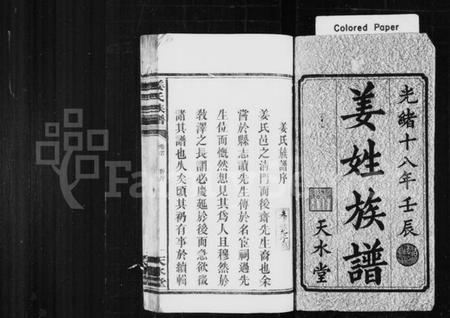 Colored Paper
光緒十八年壬辰
姜姓族譜
天水堂
姜氏族譜序
姜氏邑之清門而後齋先生裔也余
嘗於縣志讀先生傳於名宦祠過先
生位而慨然想見其為人且穆然於
教澤之長謂必慶延於後而急欲徵
諸其譜也久矣頃其礽有事於續輯
姜氏族譜
天水堂